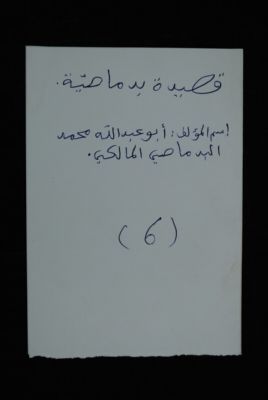 قصيدة بدماصية.
إسم المؤلف: أبو عبد الله محمد
البدماصي المالكي.
(6)